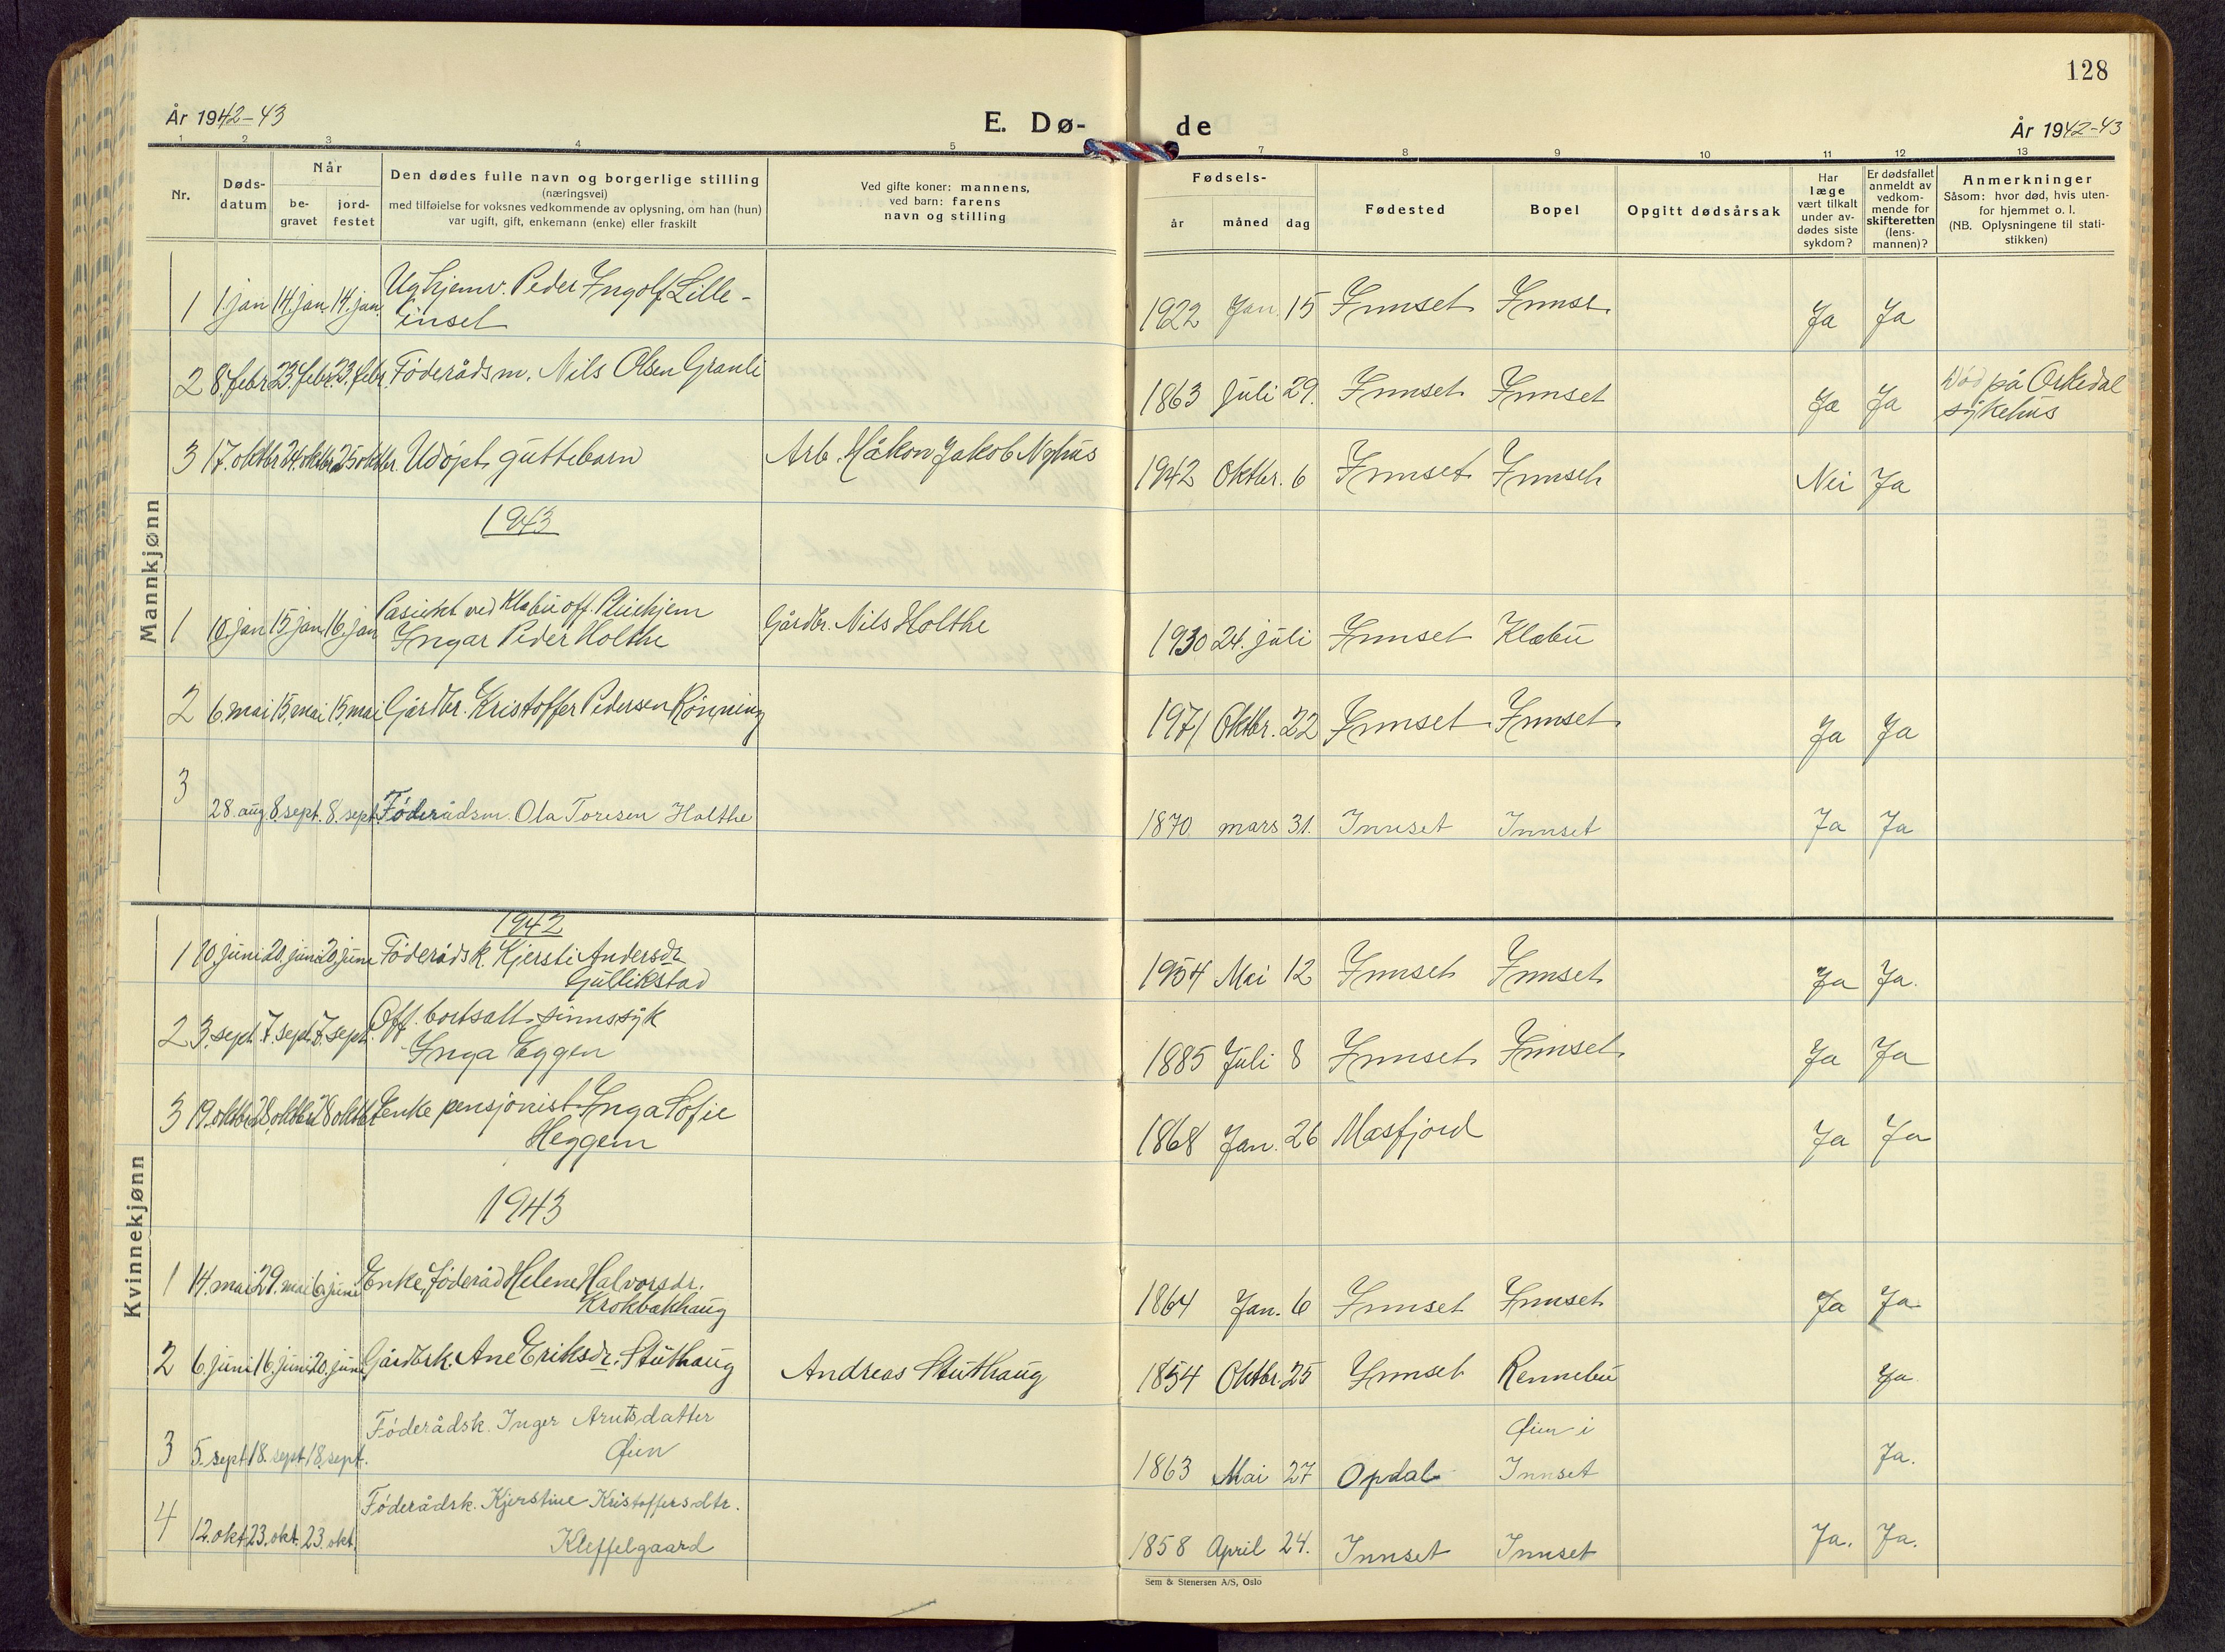 128
År 1942-43
E. Dø-
de
År 1942-43
1 2 3 4 5 7 8 9 10 11 12 13
Nr.
Døds-
datum
Når
be-
gravet
jord-
festet
Den dødes fulle navn og borgerlige stilling
(næringsvei)
med tilføielse for voksnes vedkommende av oplysning, om han (hun)
var ugift, gift, enkemann (enke) eller fraskilt
Ved gifte koner: mannens,
ved barn: farens
navn og stilling
Fødsels-
år
måned
dag
Fødested
Bopel
Opgitt dødsårsak
Har
læge
vært tilkalt
under av-
dødes siste
sykdom?
Er dødsfallet
anmeldt av
vedkom-
mende for
skifteretten
(lens-
mannen)?
Anmerkninger
Såsom: hvor død, hvis uten-
for hjemmet o. l.
(NB. Oplysningene til stati-
stikken)
Mannkjønn
1 1. jan 14. jan. 14. jan. Ug hjemv. Peder Ingolf Lille-
inset
1922 Jan. 15 Innset Innset Ja Ja
2 8. febr 23. febr. 23. febr. Föderådsm. Nils Olsen Granli
1863 Juli 29. Innset Innset Ja Ja Död på Orkedal
sykehus
3 17. oktbr 24. oktbr 25 oktbr. Udöpt guttebarn Arb. Håkon Jakob Nyhus
1942 Oktbr. 6 Innset Innset Nei Ja
1943
1 10. jan 15 jan 16. jan Pasient ved Klæbu off. Pleiehjem
Ingar Peder Holthe Gårdbr. Nils Holthe
1930 24. juli Innset Klæbu
2 6. mai 15. mai 15. mai Gårdbr. Kristoffer Pedersen Rönning
1971 Oktbr. 22 Innset Innset Ja Ja
3 28. aug. 8. sept. 8. sept. Föderådsm. Ola Toresen Holthe
1870 mars 31. Innset Innset Ja Ja
Kvinnekjønn
1942
1 10. juni 20. juni 20. june Föderådsk. Kjersti Andersdr
Gullikstad
1954 Mai 12 Innset Innset Ja Ja.
2 3. sept. 7. sept. 7. sept. Off. bortsatt sinnssyk
Inga Eggen
1885 Juli 8 Innset Innset Ja Ja
3 19. oktbr 28. oktbr 28 oktbr Enke pensjonist Inga Sofie
Heggem
1868 Jan. 26 Masfjord Ja Ja
1943
1 14. mai 29. mai 6. june Enke, föderåd Helene Halvorsdr.
Krokbækhaug
1864 Jan. 6 Innset Innset Ja Ja
2 6. juni 16. juni 20. juni Gårdbrk. Ane Eriksdr. Stuthaug Andreas Stuthaug
1854 Oktbr. 25 Innset Rennebu Ja
3 5. sept. 18. sept. 18. sept. Föderådsk. Inger Arntsdatter
Øien
1863 Mai 27 Opdal Øien i
Innset Ja.
4 12. okt. 23. okt. 23. okt. Föderådsk. Kjerstine Kristoffersdtr.
Kleffelgaard
1858 April 24. Innset Innset Ja. Ja.
Sem & Stenersen A/S, Oslo